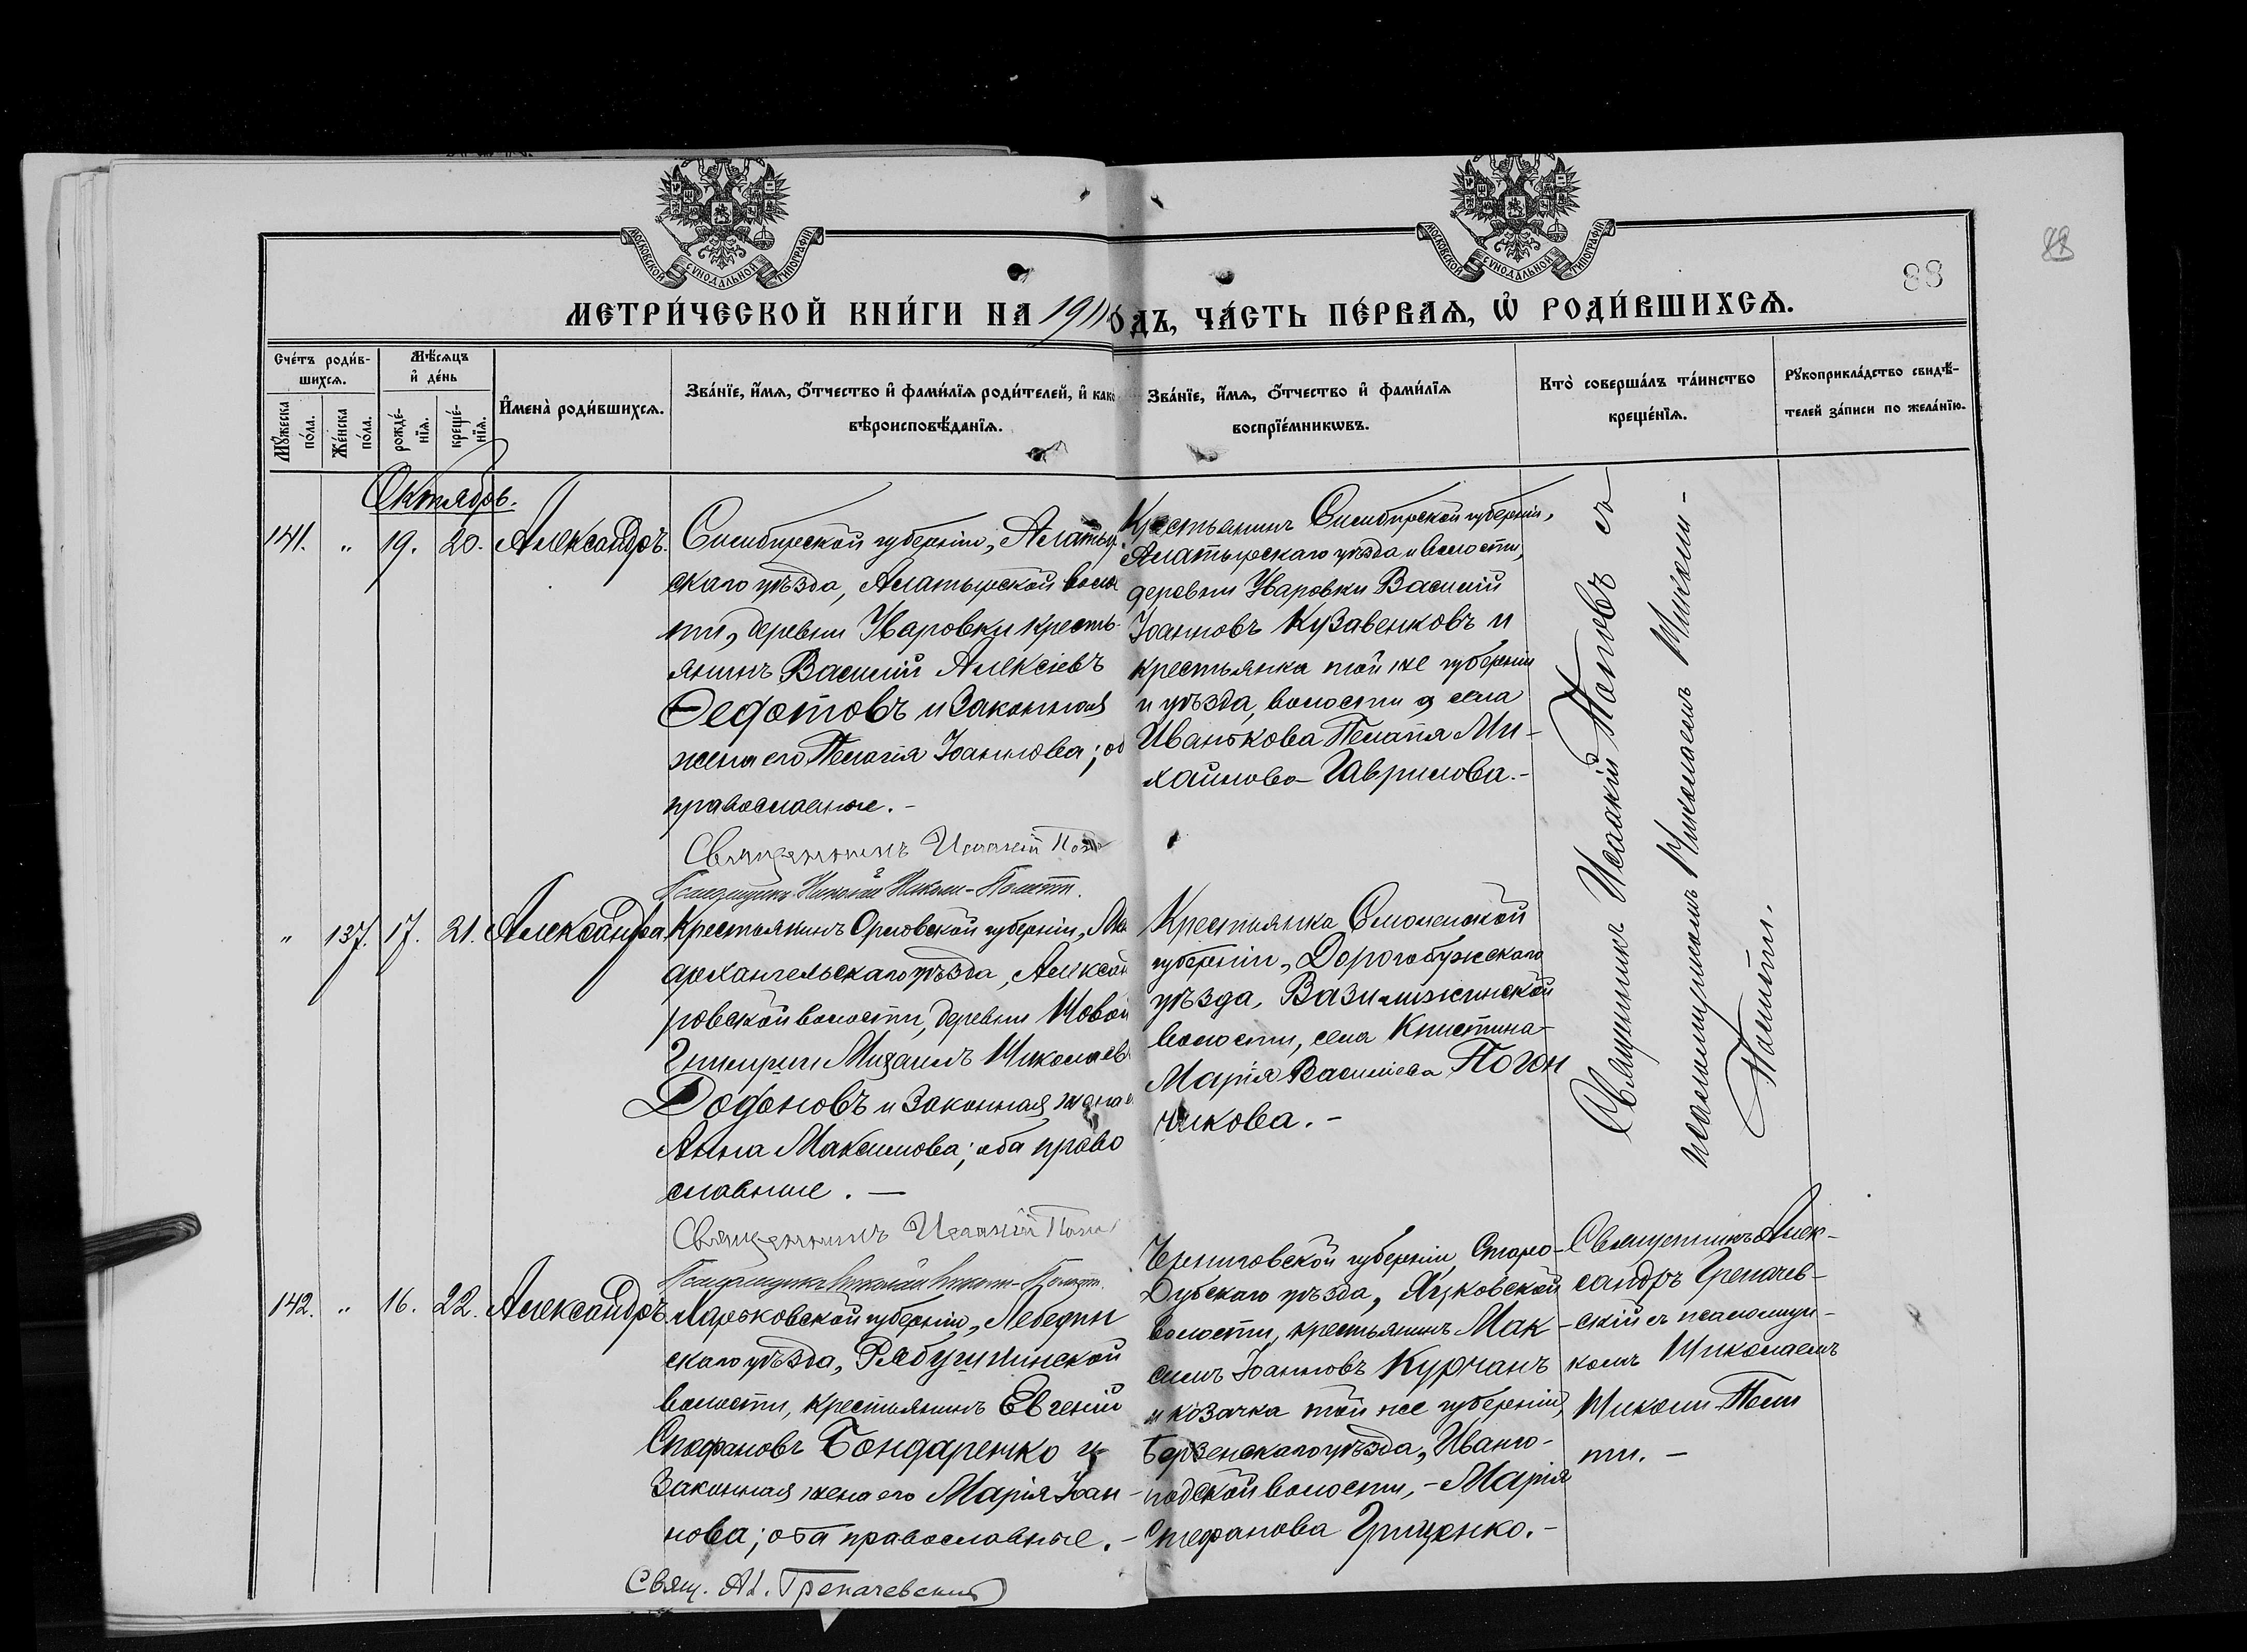 МОСКОВСКОЙ СѴНОДАЛЬНОЙ ТИПОГРАФІИ
МОСКОВСКОЙ СѴНОДАЛЬНОЙ ТИПОГРАФІИ
88
88
МЕТРИ́ЧЕСКОЙ КНИ́ГИ НА 1911 ОДЪ, ЧА́СТЬ ПЕ́РВАѦ, Ѡ҆ РОДИ́ВШИХСѦ.
Сче́тъ роди́в-
шихсѧ.
Мꙋ́жеска по́ла.
Же́нска по́ла.
Мѣ́сѧцъ
и҆ де́нь
рожде́-
нїѧ.
креще́-
нїѧ.
И҆мена̀ роди́вшихсѧ.
Зва́нїе, и҆́мѧ, ѻ҆́тчество и҆ фами́лїѧ роди́телей, и҆ како
вѣроисповѣ́данїѧ.
Зва́нїе, и҆́мѧ, ѻ҆́тчество и҆ фами́лїѧ
воспрїе́мникѡвъ.
Кто̀ соверша́лъ та́инство
креще́нїѧ.
Рꙋкоприкла́дство свидѣ́-
телей за́писи по жела́нїю.
Октябрь.
141. " 19. 20. Александръ.
Симбирской губерніи, Алатыр
скаго уѣзда, Алатырской волос
ти, деревни Уваровки кресть-
янинъ Василій Алексіевъ
Ѳедотовъ и законная
жена его Пелагія Іоаннова; об
православные.-
Священникъ Исаакій Попо
Псаломщикъ Николай Николи-Политти.
Крестьянинъ Симбирской губерніи,
Алатырскаго уѣзда и волости,
деревни Уваровки Василій
Іоанновъ Кузавенковъ и
крестьянка той же губерніи
и уѣзда, волости и села
Иванькова Пелагія Ми-
хайлова Гаврилова.-
Священникъ Исаакій Поповъ съ
псаломщикомъ Николаемъ Николи-
Политти.
" 137. 17. 21. Александра
Крестьянинъ Орловской губерніи, Мало
архангельскаго уѣзда, Алексан
ровской волости, деревни Новой
Михаилъ Николаевъ
Додоновъ и законная жена е
Анна Максимова; оба право
славные. —
Священникъ Исаакій Попо
Псаломщикъ Николай Николи-Политти.
Крестьянка Смоленской
губерніи, Дорогобужскаго
уѣзда,
волости, села
Марія Васильева Погон
чикова.-
142. " 16. 22. Александръ
Харьковской губерніи, Лебедин
скаго уѣзда, Рябушкинской
волости, крестьянинъ Евгеній
Стефановъ Бондаренко и
законная жена его Марія Іоан-
нова; оба православные.-
Свящ. Ал. Грепачевскій
Черниговской губерніи, Старо-
дубскаго уѣзда, Яцковской
волости, крестьянинъ Мак-
симъ Іоанновъ Курчанъ
и козачка той же губерніи,
Борзенскаго уѣзда, Иванго-
родской волости,-Марія
Стефанова Гриценко.-
Священникъ Алек-
сандръ Грепачев-
скій съ псаломщи-
комъ Николаемъ
Николи Поли
тти.-